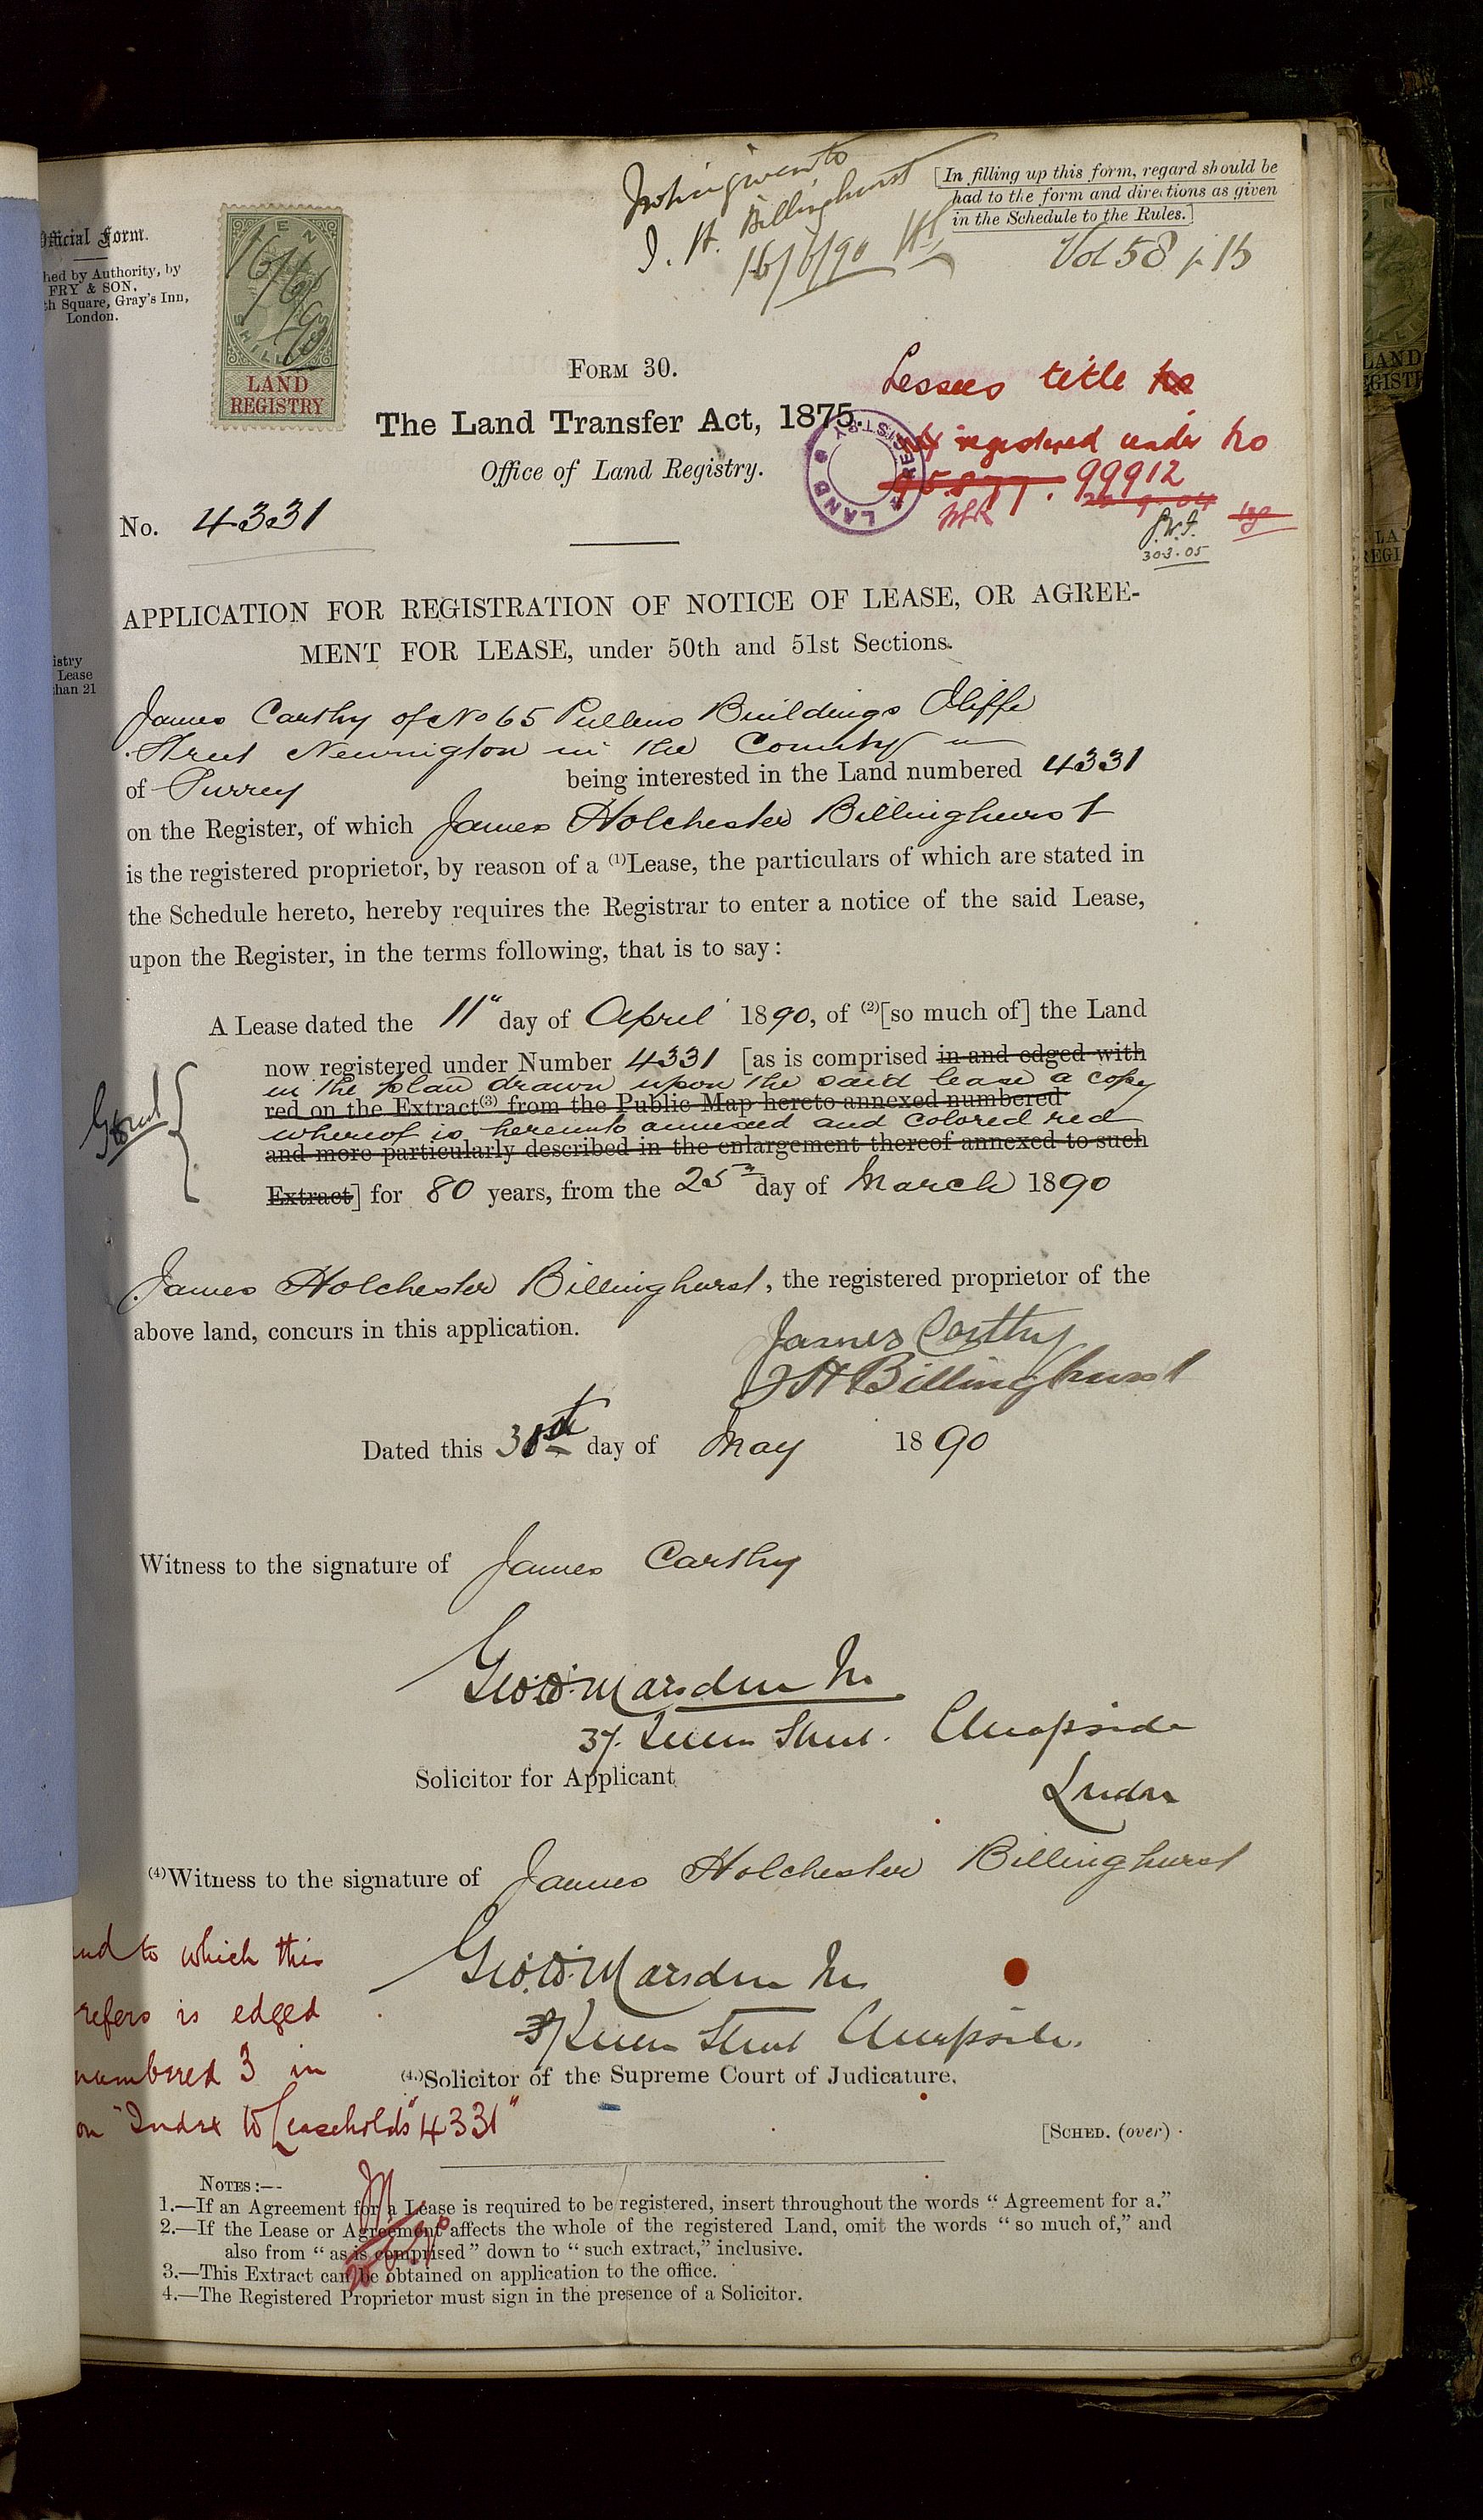 Official Form.
hed by Authority, by
FRY & SON,
th Square, Gray's Inn,
London.
TEN
SHILLINGS
16/6/90
LAND
REGISTRY
Notice given to
J. H. Billinghurst
16/6/90
[In filling up this form, regard should be
had to the form and directions as given
in the Schedule to the Rules.]
Vol 58 p 13
FORM 30.
The Land Transfer Act, 1875.
Office of Land Registry.
LAND REGISTRY
Lessees title no
registered under no
99912
30.3.05
No. 4331
APPLICATION FOR REGISTRATION OF NOTICE OF LEASE, OR AGREE-
MENT FOR LEASE, under 50th and 51st Sections.
istry
Lease
than 21
James Carthy of No 65 Pullens Buildings Iliffe
Street Newington in the County
of Surrey being interested in the Land numbered 4331
on the Register, of which James Holchester Billinghurst
is the registered proprietor, by reason of a (1)Lease, the particulars of which are stated in
the Schedule hereto, hereby requires the Registrar to enter a notice of the said Lease,
upon the Register, in the terms following, that is to say:
A Lease dated the 11" day of April 1890, of (2)[so much of] the Land
now registered under Number 4331 [as is comprised in and edged with
in the plan drawn upon the said lease a copy
red on the Extract(3) from the Public Map hereto annexed numbered
whereof is hereunto annexed and colored red
and more particularly described in the enlargement thereof annexed to such
Extract] for 80 years, from the 25th day of March 1890
James Holchester Billinghurst, the registered proprietor of the
above land, concurs in this application.
James Carthy
J H Billinghurst
Dated this 31st day of May 1890
Witness to the signature of James Carthy
Geo. W. Marsden
37. Queen Street. Cheapside
Solicitor for Applicant
London
(4)Witness to the signature of James Holchester Billinghurst
Geo. W. Marsden
37 Queen Street Cheapside.
(4.)Solicitor of the Supreme Court of Judicature.
and to which this
refers is edged
numbered 3 in
on "Index to Leaseholds" 4331"
[SCHED. (over)
NOTES:—
1.—If an Agreement for a Lease is required to be registered, insert throughout the words “Agreement for a.”
2.—If the Lease or Agreement affects the whole of the registered Land, omit the words “so much of,” and
also from “as is comprised” down to “such extract,” inclusive.
3.—This Extract can be obtained on application to the office.
4.—The Registered Proprietor must sign in the presence of a Solicitor.